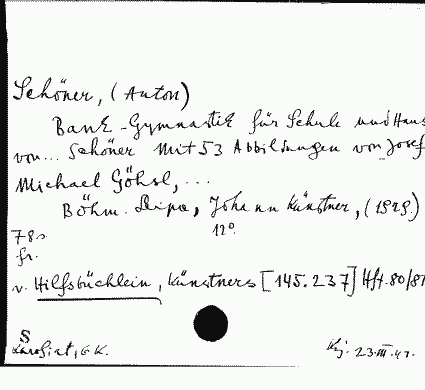 Schöner, (Anton)
Bank-Gymnastik für Schule und Haus
von... Schöner Mit 53 Abbildungen von Josef
Michael Göhsl, ...
Böhm. Leipa, Johann Künstner, (1929.)
78 s. 12°.
fr.
v. Hilfsbüchlein, Künstners [145.237] Hft. 80/81
S
G K. 23.III.47.